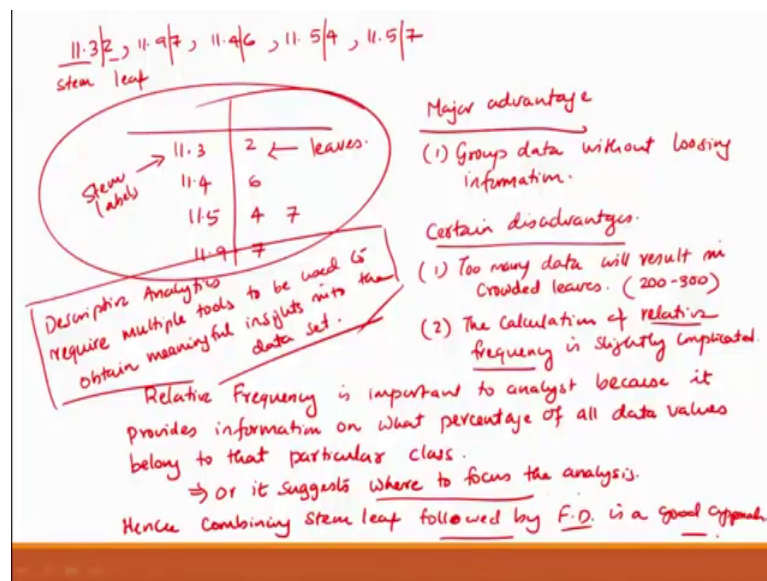 11.3|2, 11.9|7, 11.4|6, 11.5|4, 11.5|7
stem leaf
Stem labels → 11.3 | 2 ← leaves.
11.4 | 6
11.5 | 4 7
11.9 | 7
Descriptive Analytics
require multiple tools to be used to
obtain meaningful insights into the
data set.
Major advantage
(1) Group data without loosing
information.
Certain disadvantges.
(1) Too many data will result in
crowded leaves. (200-300)
(2) The calculation of relative
frequency is slightly complicated.
Relative Frequency is important to analyst because it
provides information on what percentage of all data values
belong to that particular class.
⇒ or it suggests where to focus the analysis.
Hence combining stem leaf followed by F.D. is a good approach